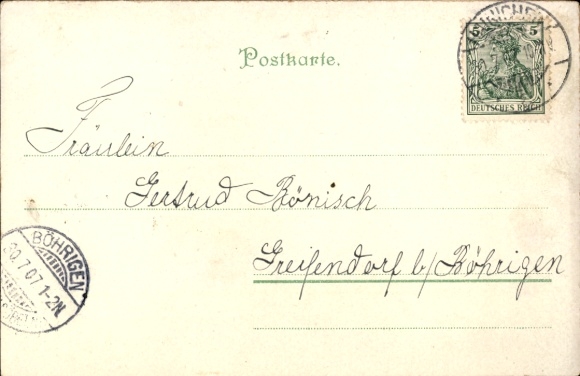 Postkarte.
5 5
DEUTSCHES REICH
Fräulein
Gertrud Bönisch
Greifendorf b/Böhrigen
BÖHRIGEN
7.07.1-2N